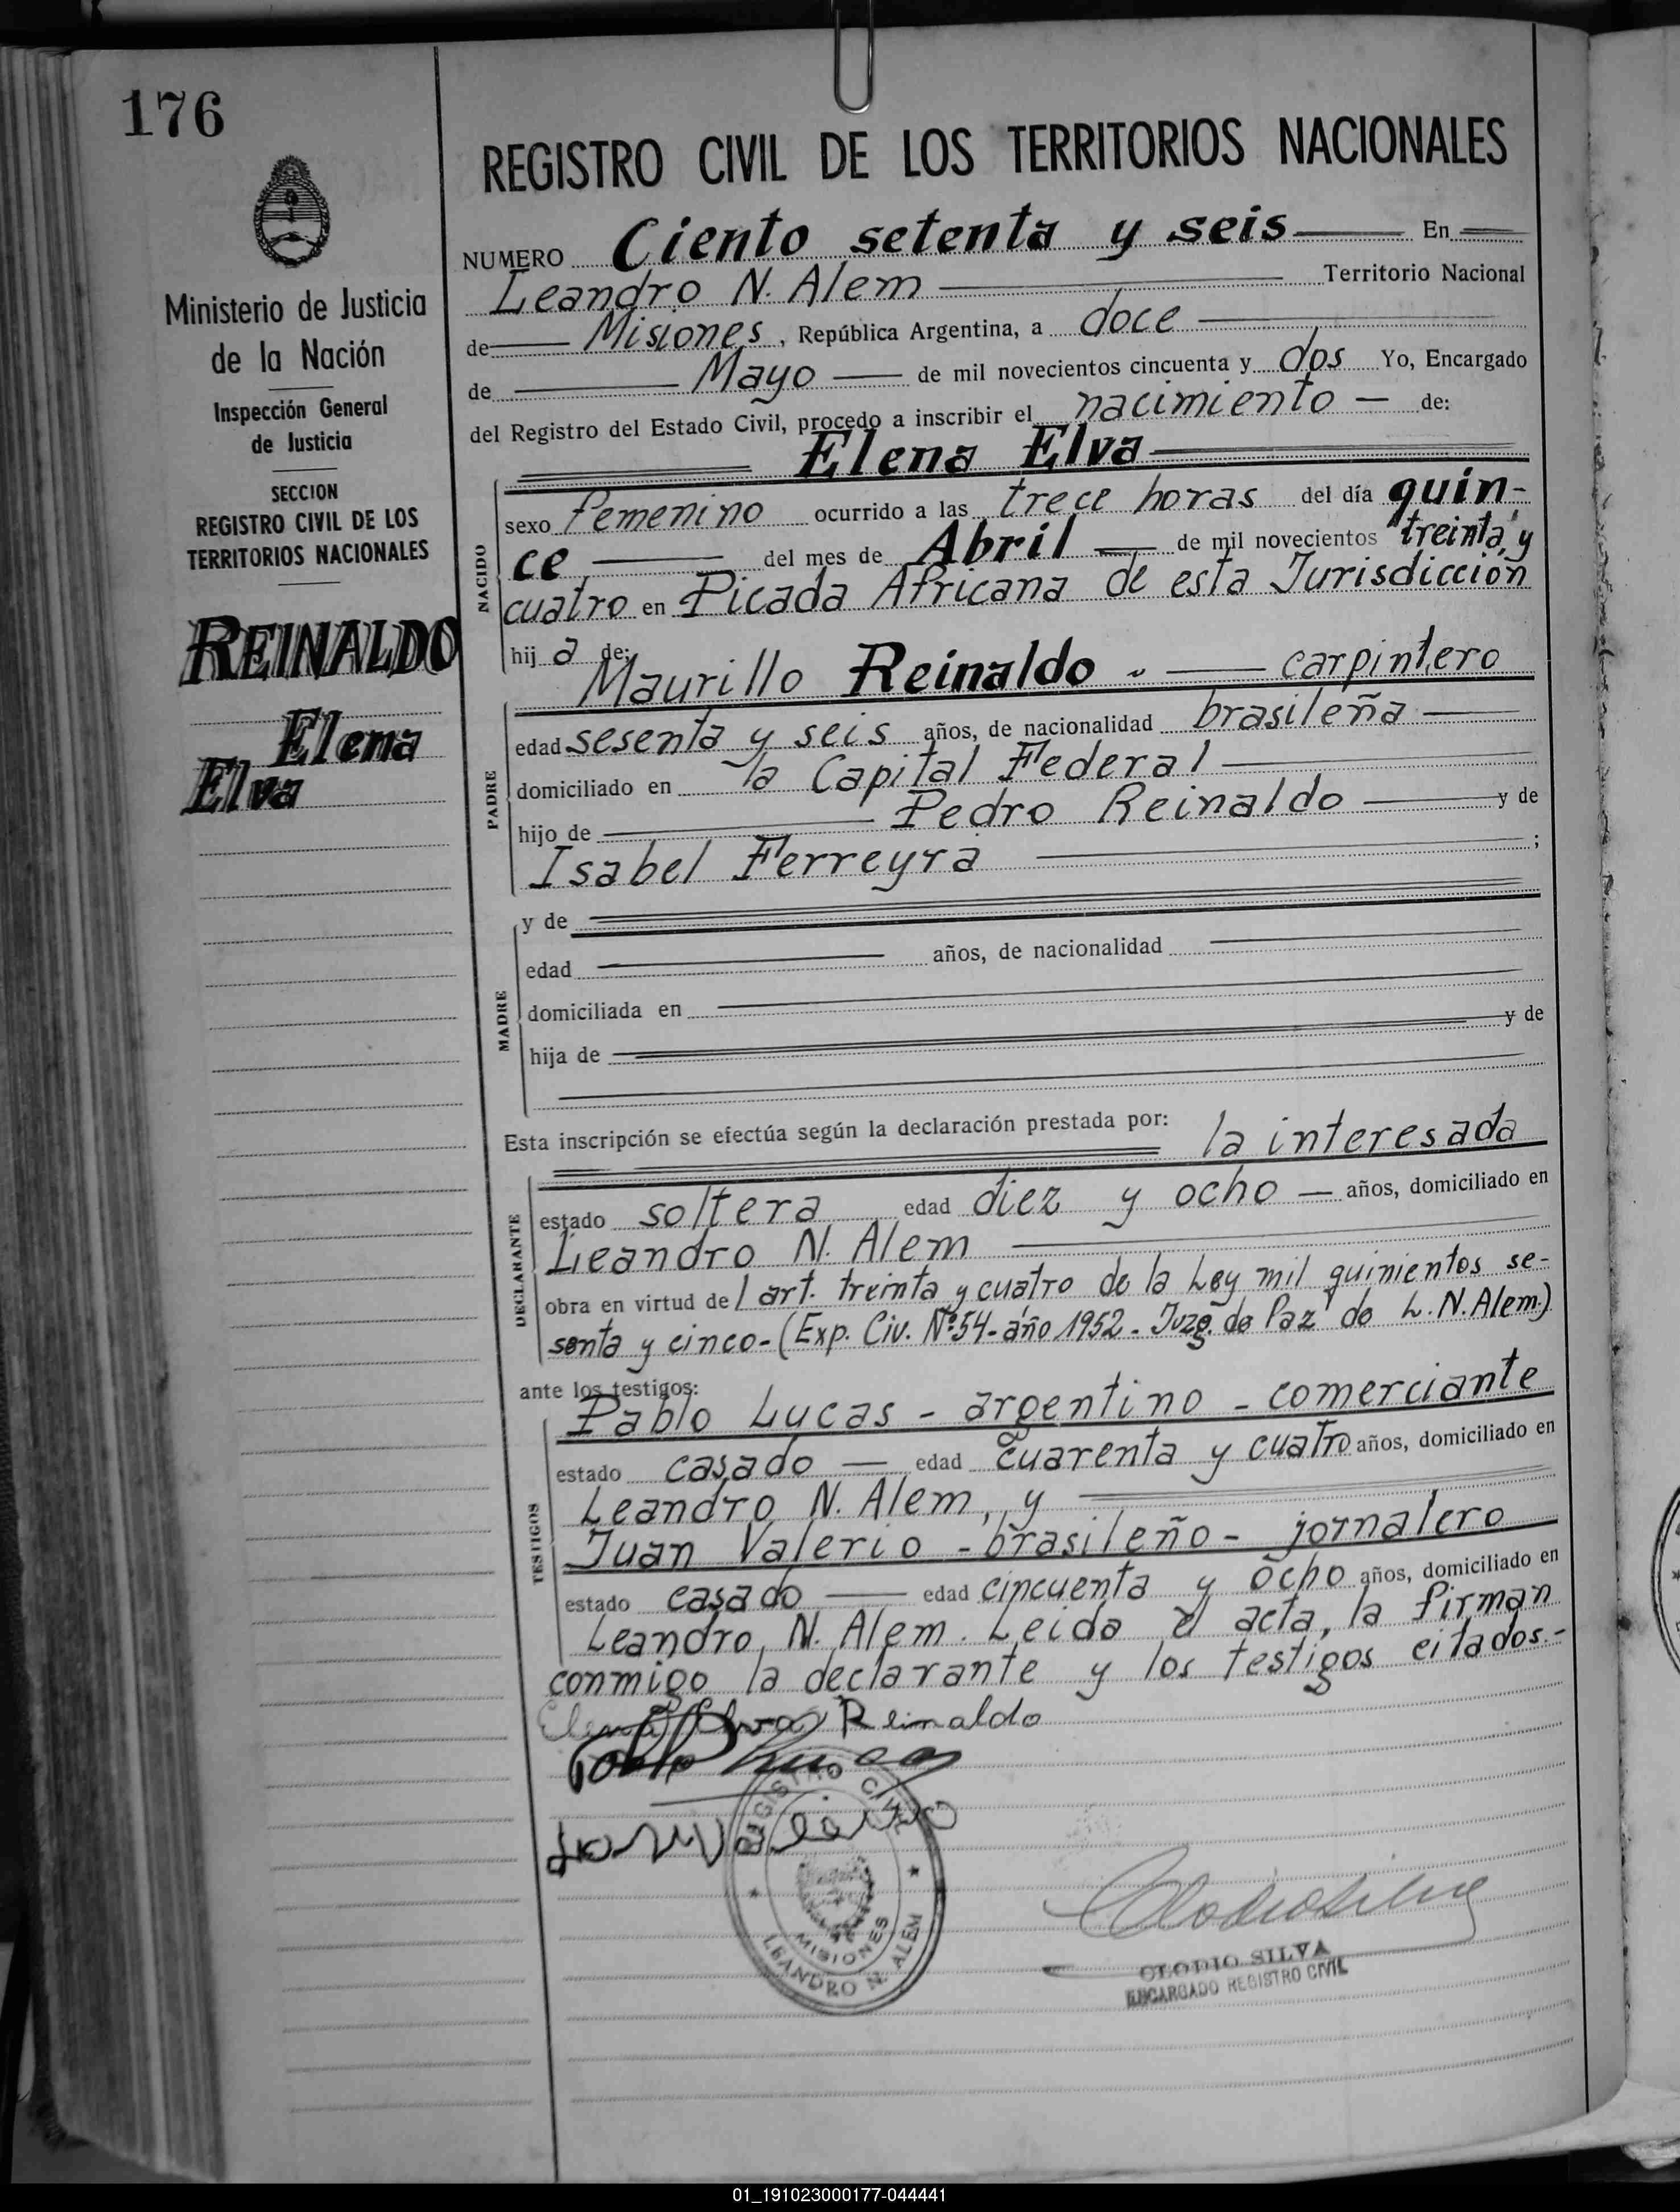 176
Ministerio de Justicia
de la Nación
Inspección General
de Justicia
SECCION
REGISTRO CIVIL DE LOS
TERRITORIOS NACIONALES
REINALDO
Elena
Elva
REGISTRO CIVIL DE LOS TERRITORIOS NACIONALES
NUMERO Ciento setenta y seis En
Leandro N. Alem Territorio Nacional
de Misiones, República Argentina, a doce
de Mayo de mil novecientos cincuenta y dos Yo, Encargado
del Registro del Estado Civil, procedo a inscribir el nacimiento de:
Elena Elva
NACIDO
sexo femenino ocurrido a las trece horas del día quin-
ce del mes de Abril de mil novecientos "treinta, y
cuatro en Picada Africana de esta Jurisdicción
hij a de:
Maurillo Reinaldo - carpintero
PADRE
edad sesenta y seis años, de nacionalidad brasileña
domiciliado en la Capital Federal
hijo de Pedro Reinaldo y de
Isabel Ferreyra ;
MADRE
y de
edad años, de nacionalidad
domiciliada en
hija de y de
Esta inscripción se efectúa según la declaración prestada por: la interesada
DECLARANTE
estado soltera edad diez y ocho años, domiciliado en
Leandro N. Alem
obra en virtud del art. treinta y cuatro de la Ley mil quinientos se-
senta y cinco-(Exp. Civ. Nº54-año 1952- Juzg. de Paz de L. N. Alem.)
ante los testigos:
TESTIGOS
Pablo Lucas - argentino - comerciante
estado casado edad cuarenta y cuatro años, domiciliado en
Leandro N. Alem, y
Juan Valerio - brasileño - jornalero
estado casado edad cincuenta y ocho años, domiciliado en
Leandro N. Alem. Leida el acta, la firman
conmigo la declarante y los testigos citados.-
Elena Elva Reinaldo
REGISTRO CIVIL
MISIONES
LEANDRO N. ALEM
CLODIO SILVA
ENCARGADO REGISTRO CIVIL
01_191023000177-044441